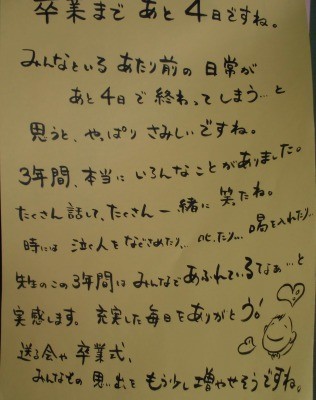 卒業まで あと 4日ですね。
みんなといる あたり前の 日常が
あと 4日で 終わってしまう…と
思うと、やっぱり さみしいですね。
3年間、本当に いろんなことがありました。
たくさん 話して、たくさん 一緒に 笑たね。
時には 泣く人を なぐさめたり… 叱ったり… 喝を入れたり…
先生のこの3年間は みんなで あふれているなぁ…と
実感します。 充実した 毎日を ありがとう!
送る会や 卒業式、
みんなとの 思い出を もう少し 増やせそうですね。